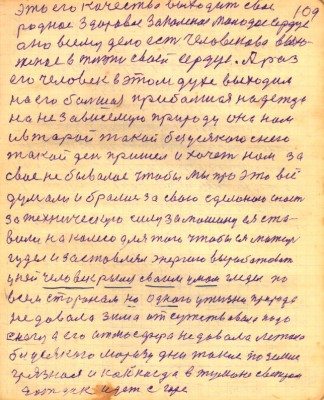 109
это его качество выходит свое
родное здоровое закаленое молодое сердце
оно всему дело есть человеково
в жизни своей сердце. А раз
его человек в этом духе выходил
на его прибольшая надежда
на независемую природу она нам
и второй такой без всякого снега
такой ден пришел и хочет нам за
свое небывалое чтобы мы про это всё
думали и брались за свою сделоною снасть
за техническую силу за машину ея ста
вили на колесо для того чтобы ея мотор
гудел и заставлял энергию выработовать
цией человек рылся своим умом гледел по
всем сторонам но одного у жизни природа
не довала зима отсутствовала подо
снегу а его атмосфера не довала летала
без всякого морозу дни такие по земле
грязная и как когда в тумано светится
идет с горе